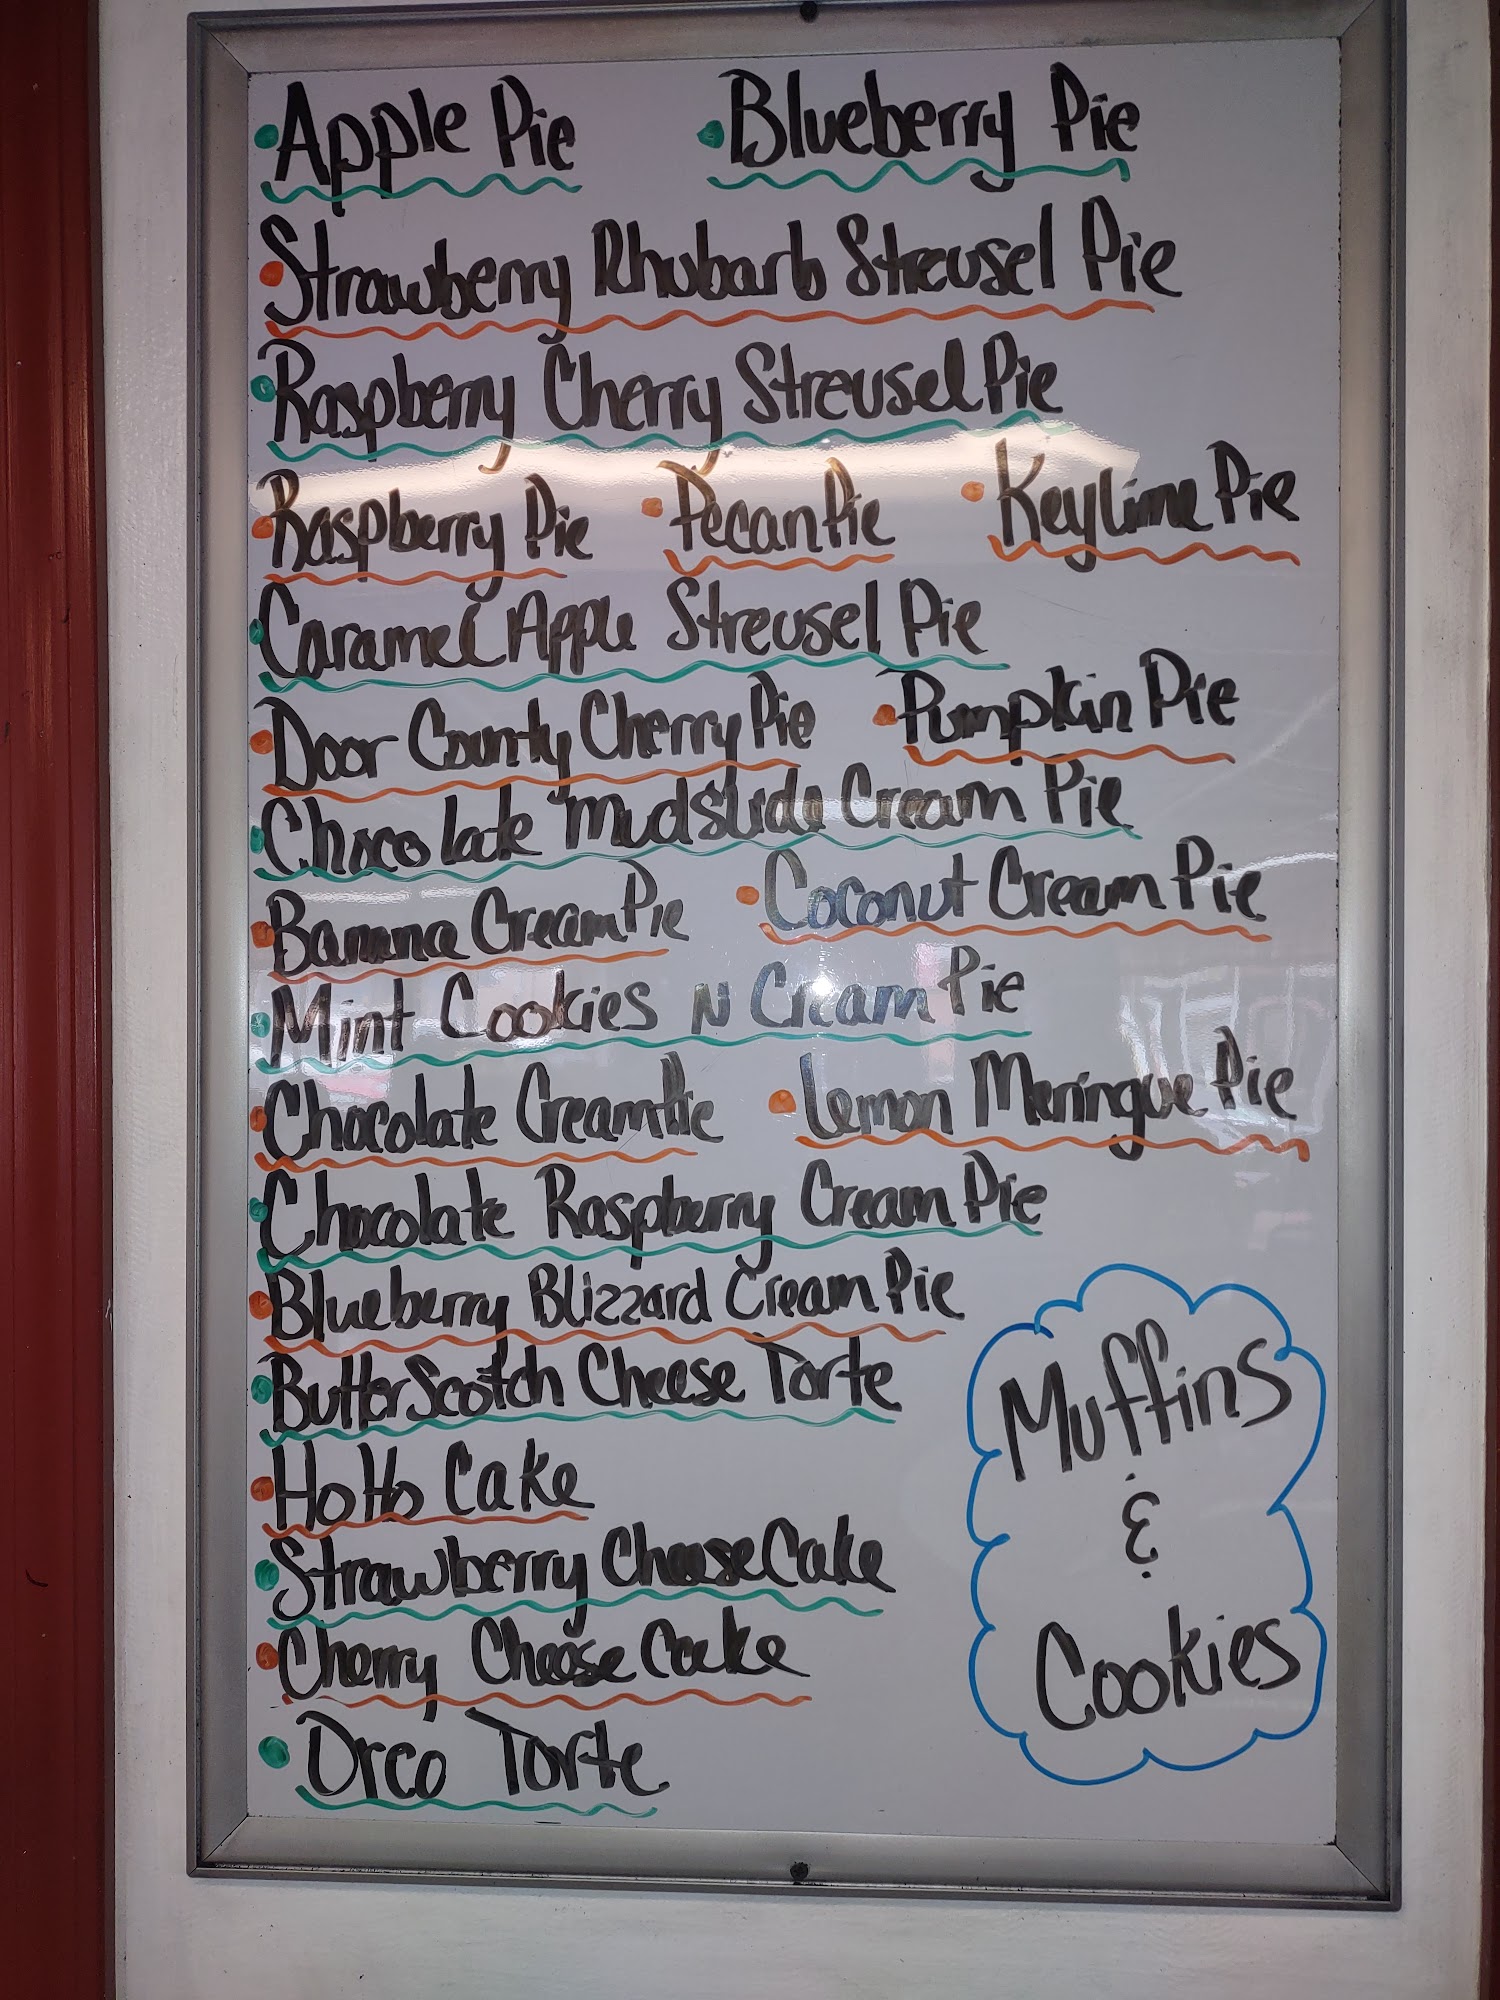 • Apple Pie • Blueberry Pie
• Strawberry Rhubarb Streusel Pie
• Raspberry Cherry Streusel Pie
• Raspberry Pie • Pecan Pie • Key Lime Pie
• Caramel Apple Streusel Pie
• Door County Cherry Pie • Pumpkin Pie
• Chocolate Mudslide Cream Pie
• Banana Cream Pie • Coconut Cream Pie
• Mint Cookies N Cream Pie
• Chocolate Cream Pie • Lemon Meringue Pie
• Chocolate Raspberry Cream Pie
• Blueberry Blizzard Cream Pie
• ButterScotch Cheese Torte
• HoHo Cake
• Strawberry CheeseCake
• Cherry Cheese Cake
• Oreo Torte
Muffins
&
Cookies